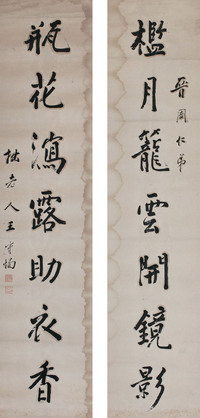 晉周仁弟
檻月籠雲開鏡影
瓶花瀉露助衣香
拙老人王守恂